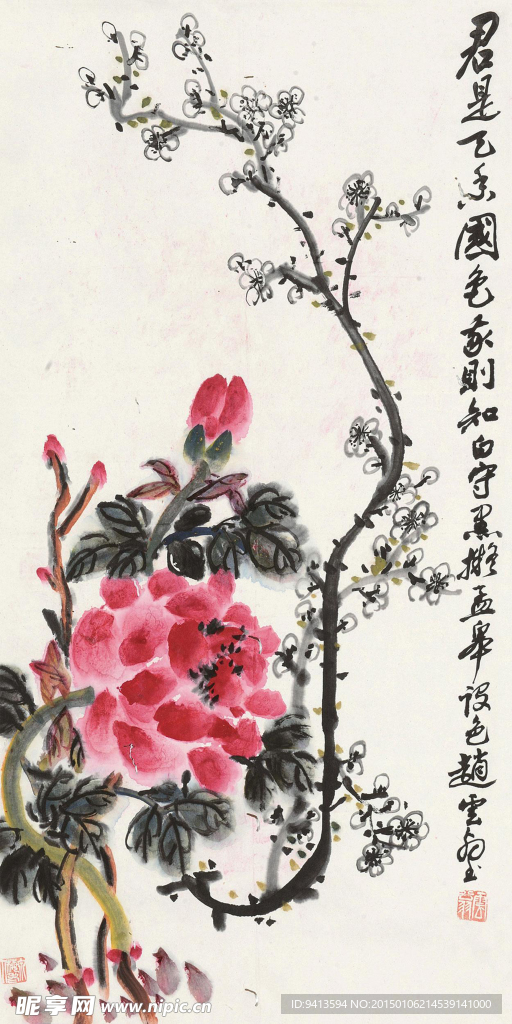 君是天香國色我則知白守黑擬孟皋設色趙雲壑
雲壑
昵享网 www.nipic.cn
ID:9413594 NO:20150106214539141000